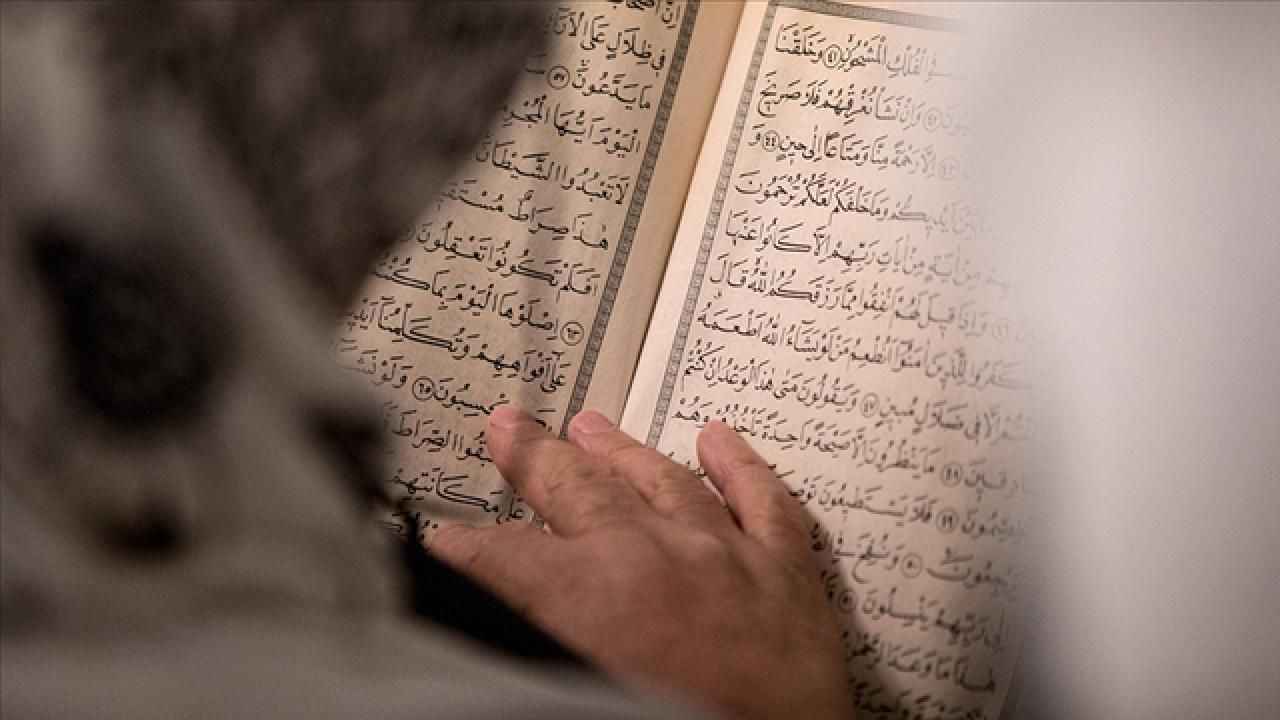 فِي الْفُلْكِ الْمَشْحُونِ ﴿٤١﴾ وَخَلَقْنَا
﴿٤٢﴾ وَاِنْ نَشَأْ نُغْرِقْهُمْ فَلَا صَرِيخَ
﴿٤٣﴾ اِلَّا رَحْمَةً مِنَّا وَمَتَاعًا اِلٰى حِينٍ ﴿٤٤﴾ وَ
بَيْنَ اَيْدِيكُمْ وَمَا خَلْفَكُمْ لَعَلَّكُمْ تُرْحَمُونَ
مِنْ اٰيَةٍ مِنْ اٰيَاتِ رَبِّهِمْ اِلَّا كَانُوا عَنْهَا
﴿٤٦﴾ وَاِذَا قِيلَ لَهُمْ اَنْفِقُوا مِمَّا رَزَقَكُمُ اللّٰهُ قَالَ
كَفَرُوا لِلَّذِينَ اٰمَنُوا اَنُطْعِمُ مَنْ لَوْ يَشَاءُ اللّٰهُ اَطْعَمَهُ
اِلَّا فِي ضَلَالٍ مُبِينٍ ﴿٤٧﴾ وَيَقُولُونَ مَتٰى هٰذَا الْوَعْدُ اِنْ كُنْتُمْ
صَادِقِينَ ﴿٤٨﴾ مَا يَنْظُرُونَ اِلَّا صَيْحَةً وَاحِدَةً تَأْخُذُهُمْ وَهُمْ
يَخِصِّمُونَ ﴿٤٩﴾ فَلَا يَسْتَطِيعُونَ
يَرْجِعُونَ ﴿٥٠﴾ وَنُفِخَ فِي
اِلٰى رَبِّهِمْ يَنْسِلُونَ ﴿٥١﴾
هٰذَا مَا وَعَدَ الرَّحْمٰنُ
وَاحِدَةً
اِنَّ اَصْحَابَ
فِي ظِلَالٍ عَلَى
مَا يَدَّعُونَ ﴿٥٧﴾
الْيَوْمَ اَيُّهَا
لَا تَعْبُدُوا الشَّيْطَانَ
هٰذَا صِرَاطٌ
اَفَلَمْ تَكُونُوا تَعْقِلُونَ
﴿٦٣﴾ اِصْلَوْهَا الْيَوْمَ بِمَا كُنْتُمْ
عَلٰى اَفْوَاهِهِمْ وَتُكَلِّمُنَا
يَكْسِبُونَ ﴿٦٥﴾ وَلَوْ نَشَاءُ
الصِّرَاطَ
عَلٰى مَكَانَتِهِمْ